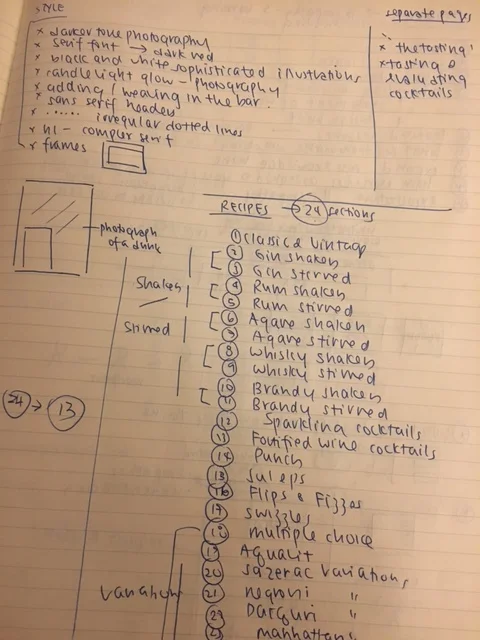 STYLE
x darker tone photography
x serif font → dark red
x black and white sophisticated illustrations
x candle light glow - photography
x adding / weaving in the bar.
x sans serif headers
x ...... irregular dotted lines
x H1 - complex serif
x frames
separate pages
x 'the tasting'
x tasting &
evaluating
cocktails
photograph
of a drink
RECIPES → 24 sections
① Classic & vintage
② Gin shaken
③ Gin stirred
Shaken
④ Rum shaken
⑤ Rum stirred
Stirred
⑥ Agave shaken
⑦ Agave stirred
⑧ Whisky shaken
⑨ Whisky stirred
⑩ Brandy shaken
⑪ Brandy stirred
24 → 13
⑫ Sparkling cocktails
⑬ Fortified wine cocktails
⑭ Punch
⑮ Juleps
⑯ Flips & Fizzes
⑰ swizzles
⑱ multiple choice
⑲ Aquavit
⑳ Sazerac variations
variations
㉑ negroni "
Daiquiri "
manhattans